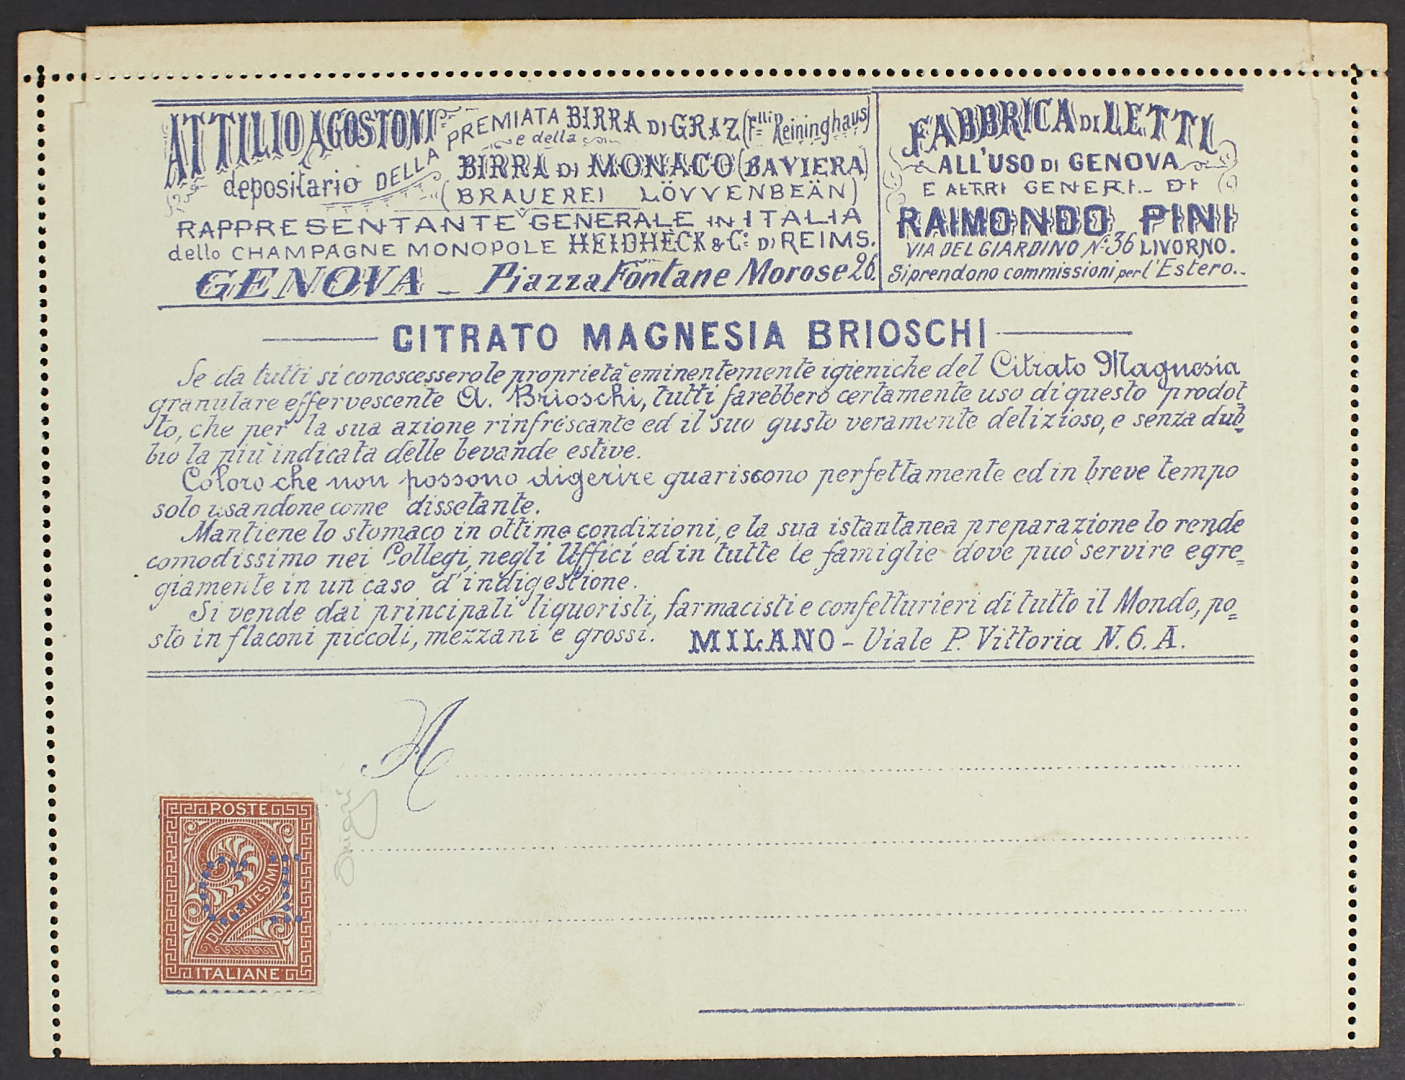 ATTILIO AGOSTONI
depositario DELLA PREMIATA BIRRA DI GRAZ (Flli Reininghaus)
e della
BIRRA DI MONACO (BAVIERA)
(BRAUEREI LÖVVENBEÄN)
RAPPRESENTANTE GENERALE IN ITALIA
dello CHAMPAGNE MONOPOLE HEIDHECK & C. DI REIMS.
GENOVA - Piazza Fontane Morose 26.
FABBRICA DI LETTI
ALL'USO DI GENOVA
E ALTRI GENERI - DI
RAIMONDO PINI
VIA DEL GIARDINO N. 36 LIVORNO.
Si prendono commissioni per l'Estero.
CITRATO MAGNESIA BRIOSCHI
Se da tutti si conoscessero le proprietà eminentemente igieniche del Citrato Magnesia
granulare effervescente A. Brioschi, tutti farebbero certamente uso di questo prodot
to, che per la sua azione rinfrescante ed il suo gusto veramente delizioso, e senza dub=
bio la più indicata delle bevande estive.
Coloro che non possono digerire guariscono perfettamente ed in breve tempo
solo usandone come dissetante.
Mantiene lo stomaco in ottime condizioni, e la sua istantanea preparazione lo rende
comodissimo nei Collegi, negli Uffici ed in tutte le famiglie dove può servire egre=
giamente in un caso d'indigestione.
Si vende dai principali liquoristi, farmacisti e confetturieri di tutto il Mondo, po=
sto in flaconi piccoli, mezzani e grossi. MILANO - Viale P. Vittoria N. 6. A.
A
POSTE
2
DUE CENTESIMI
ITALIANE